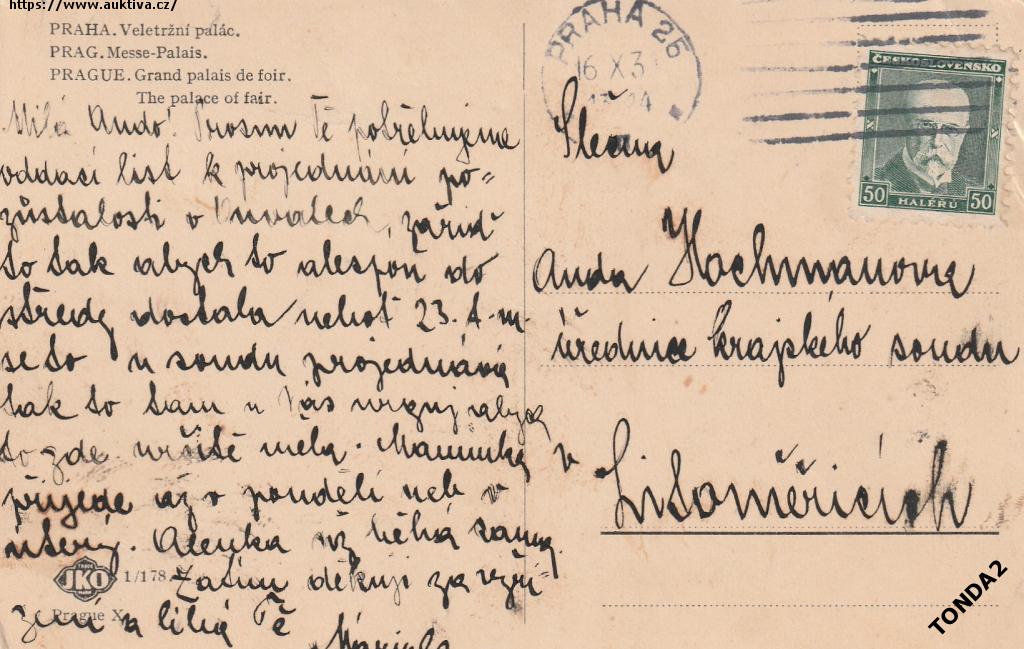 https://www.auktiva.cz/
PRAHA. Veletržní palác.
PRAG. Messe-Palais.
PRAGUE. Grand palais de foir.
The palace of fair.
Milá Ando! Prosím Tě potřebujeme
oddací list k projednání po=
zůstalosti v , zařiď
to tak abych to alespoň do
středy dostala neboť 23. t. m.
se to u soudu projednává
tak to tam u Vás urguj abych
to zde určitě měla. Maminka
přijede až v pondělí neb v
úterý. Alenka už běhá sama.
Zatím děkuji za vyří=
zení a líbá Tě
JKO
1/178.
Prague X
PRAHA 25
16 X 3
ČESKOSLOVENSKO
X X
50 HALÉŘŮ 50
Slečna
Anda Hochmanova
úřednice krajského soudu
v
Litoměřicích
TONDA2